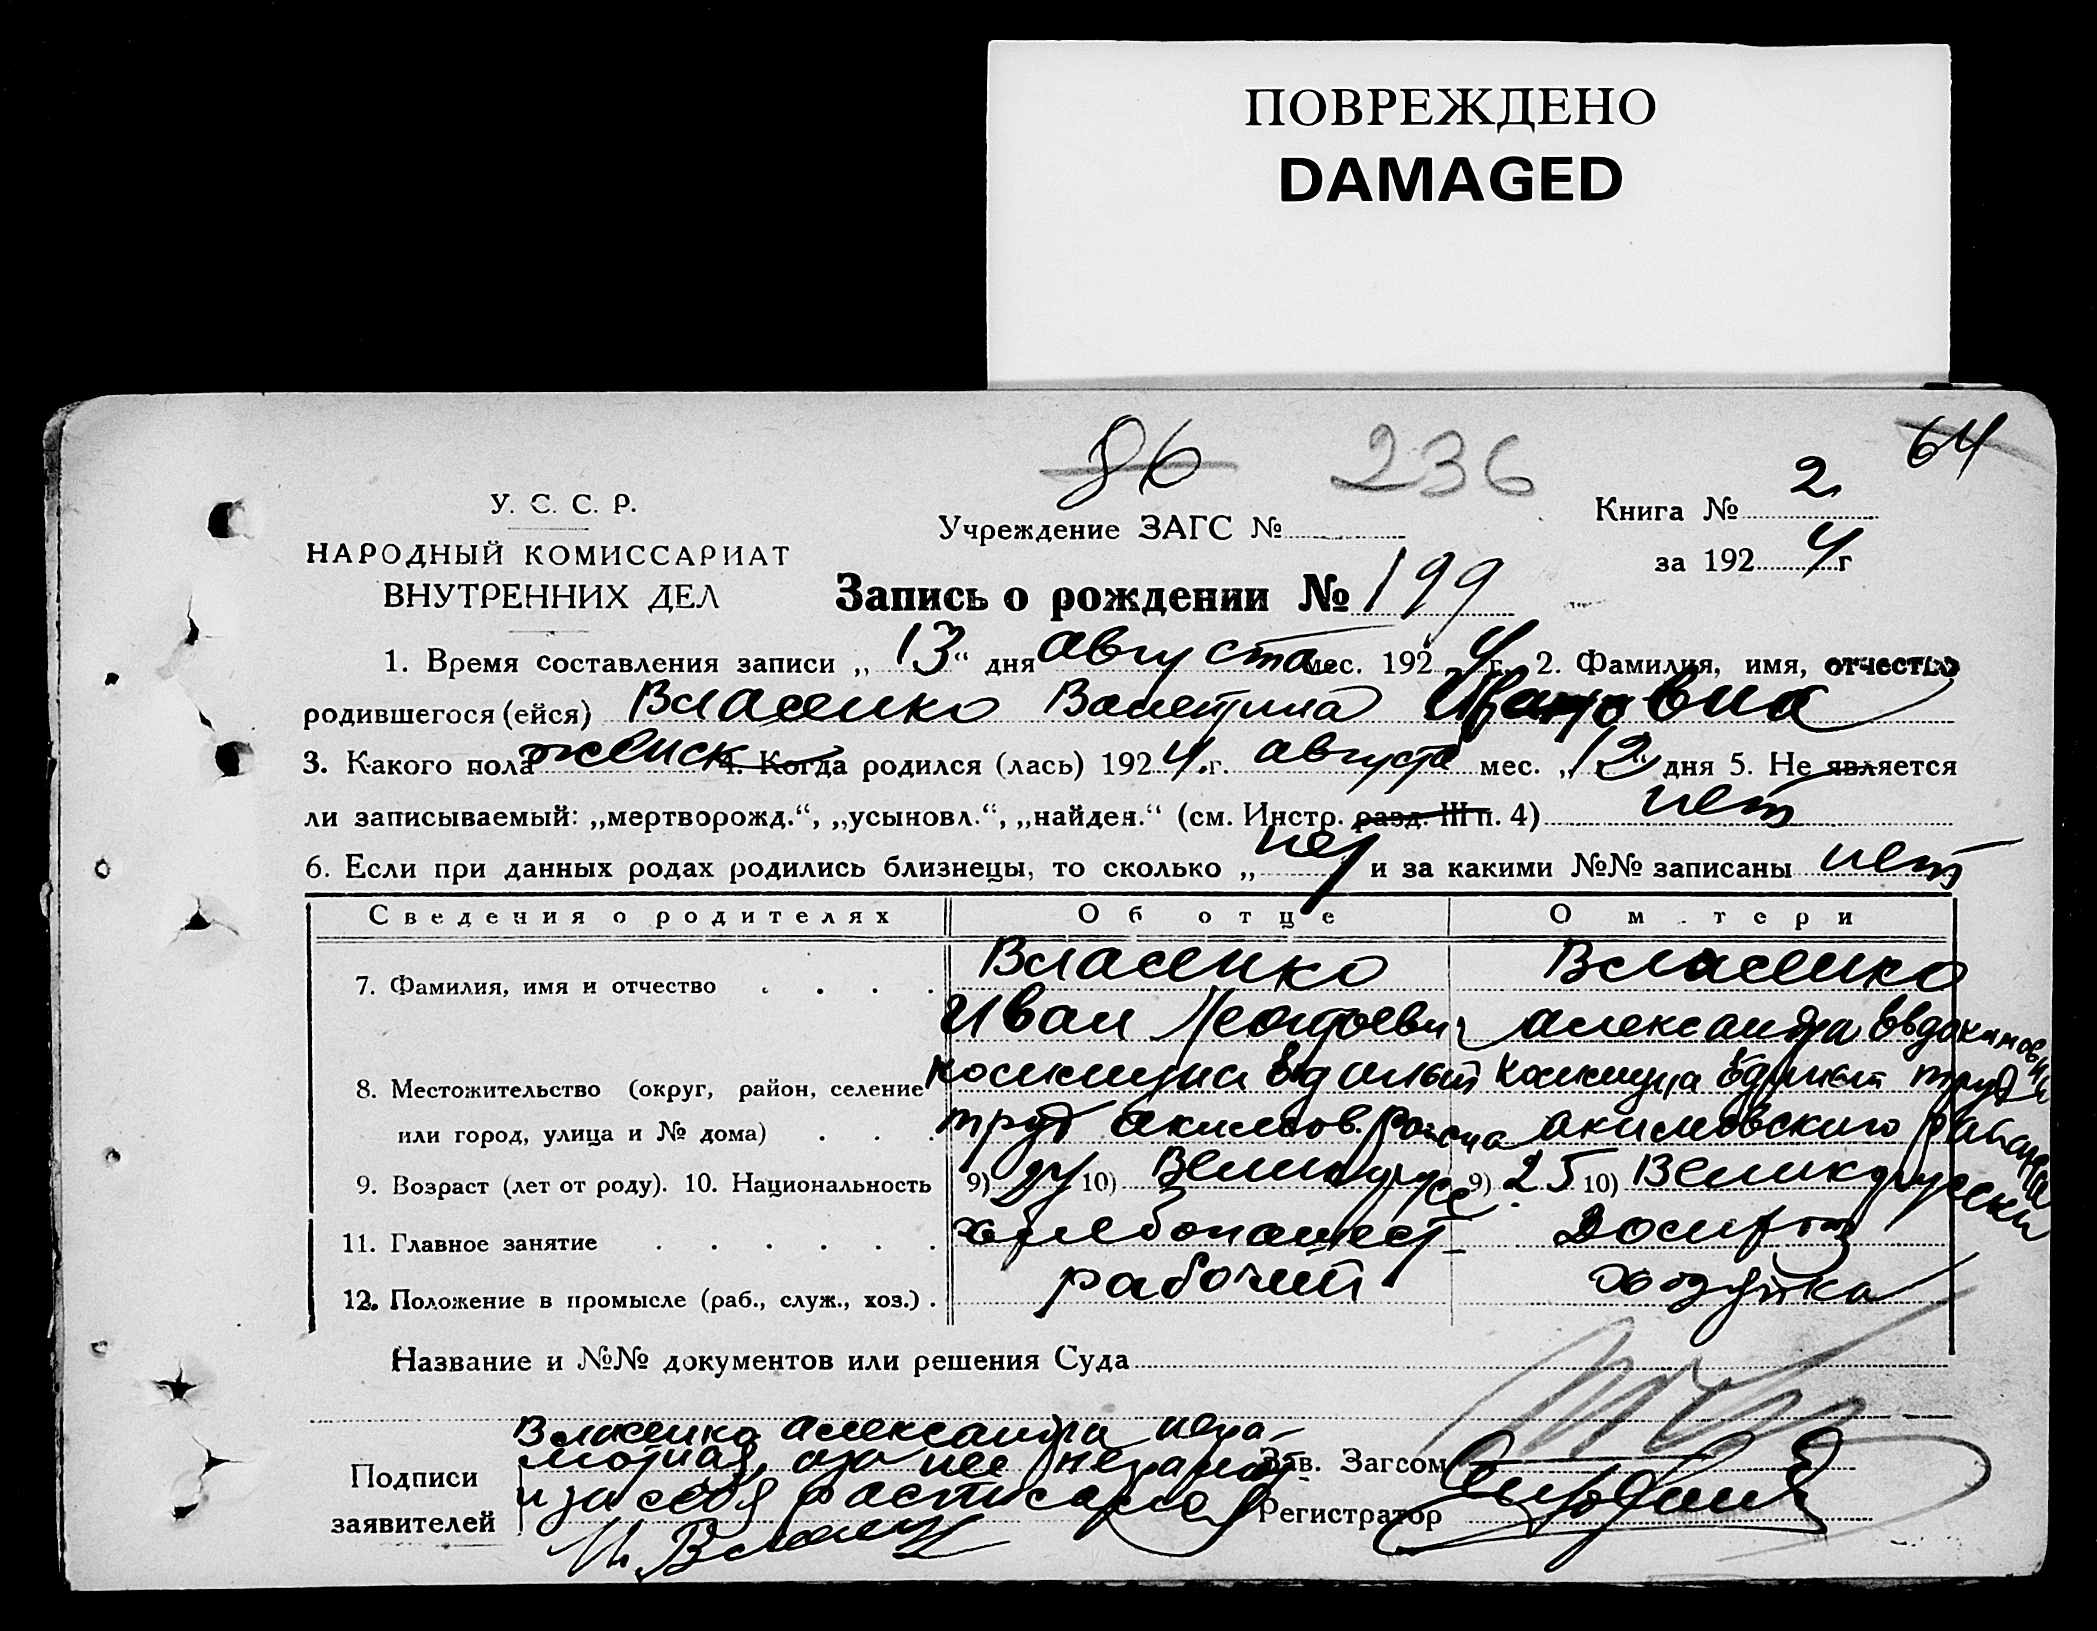 ПОВРЕЖДЕНО
DAMAGED
86 236 64
У. С. С. Р.
НАРОДНЫЙ КОМИССАРИАТ
ВНУТРЕННИХ ДЕЛ
Учреждение ЗАГС №
Книга № 2
за 1924 г
Запись о рождении № 199
1. Время составления записи „13“ дня августа мес. 1924 г. 2. Фамилия, имя, отчество
родившегося (ейся) Власенко Валетина Ивановна
3. Какого пола женск 4. Когда родился (лась) 1924 г. августа мес. „12“ дня 5. Не является
ли записываемый: „мертворожд.“, „усыновл.“, „найден.“ (см. Инстр. разд. III п. 4) нет
6. Если при данных родах родились близнецы, то сколько „нет и за какими №№ записаны нет
Сведения о родителях Об отце О м тери
7. Фамилия, имя и отчество Власенко Власенко
Иван Леонтьевич Александра Евдокимовна
8. Местожительство (округ, район, селение Едилый
или город, улица и № дома) труд Акимов. района Акимовского района
9. Возраст (лет от роду). 10. Национальность 9) 10) Великорусс. 9) 25 10) Великорусски
11. Главное занятие хлебопашест
12. Положение в промысле (раб., служ., хоз.) рабочий
Название и №№ документов или решения Суда
Власенко Александра негра-
мотная, за нее
Подписи и за себя расписался
заявителей И. Власенк
Зав. Загсом
Регистратор